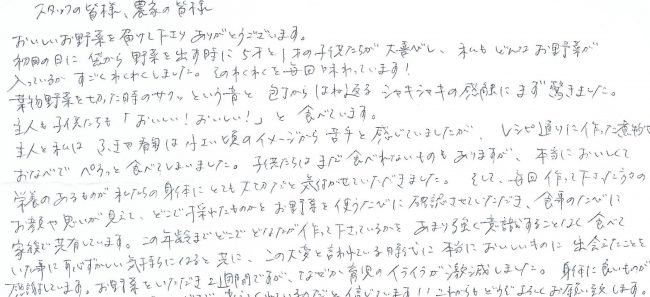 スタッフの皆様、農家の皆様
おいしいお野菜を届けて下さりありがとうございます。
初回の日に 箱から野菜を出す時に 5才と1才の子供たちが大喜びし、私もどんなお野菜が
入っているか すごくわくわくしました。そのわくわくを毎回味わっています!
葉物野菜を切った時のサクッという音と 包丁からはね返る シャキシャキの感触にまず驚きました。
主人も子供たちも「おいしい!おいしい!」と食べています。
主人と私は ふきや春菊は小さい頃のイメージから苦手と感じていましたが、レシピ通りに作った煮物や
おなべで ペろっと食べてしまいました。子供たちはまだ食べれないものもありますが、本当においしくて
栄養のあるものが 私たちの身体にとても大切だと気付かせていただきました。そして、毎回作って下さった方の
お顔や思いが見えて、どこで採れたものかとお野菜を使うたびに確認させていただき、食事のたびに
家族で共有しています。この年齢までどこでどなたが作って下さっているかを あまり強く意識することなく食べて
いた事に 恥ずかしい気持ちになると共に、この大変と言われている時代に 本当においしいものに出会えたことを
感謝しています。お野菜をいただき2週間ですが、なぜか育児のイライラが激減しました。身体に良いものが
と信じています!!これからもどうぞよろしくお願い致します。